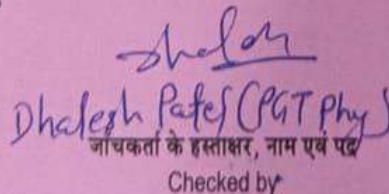 Dhalesh Patel (PGT Phy)
जांचकर्ता के हस्ताक्षर, नाम एवं पद
Checked by